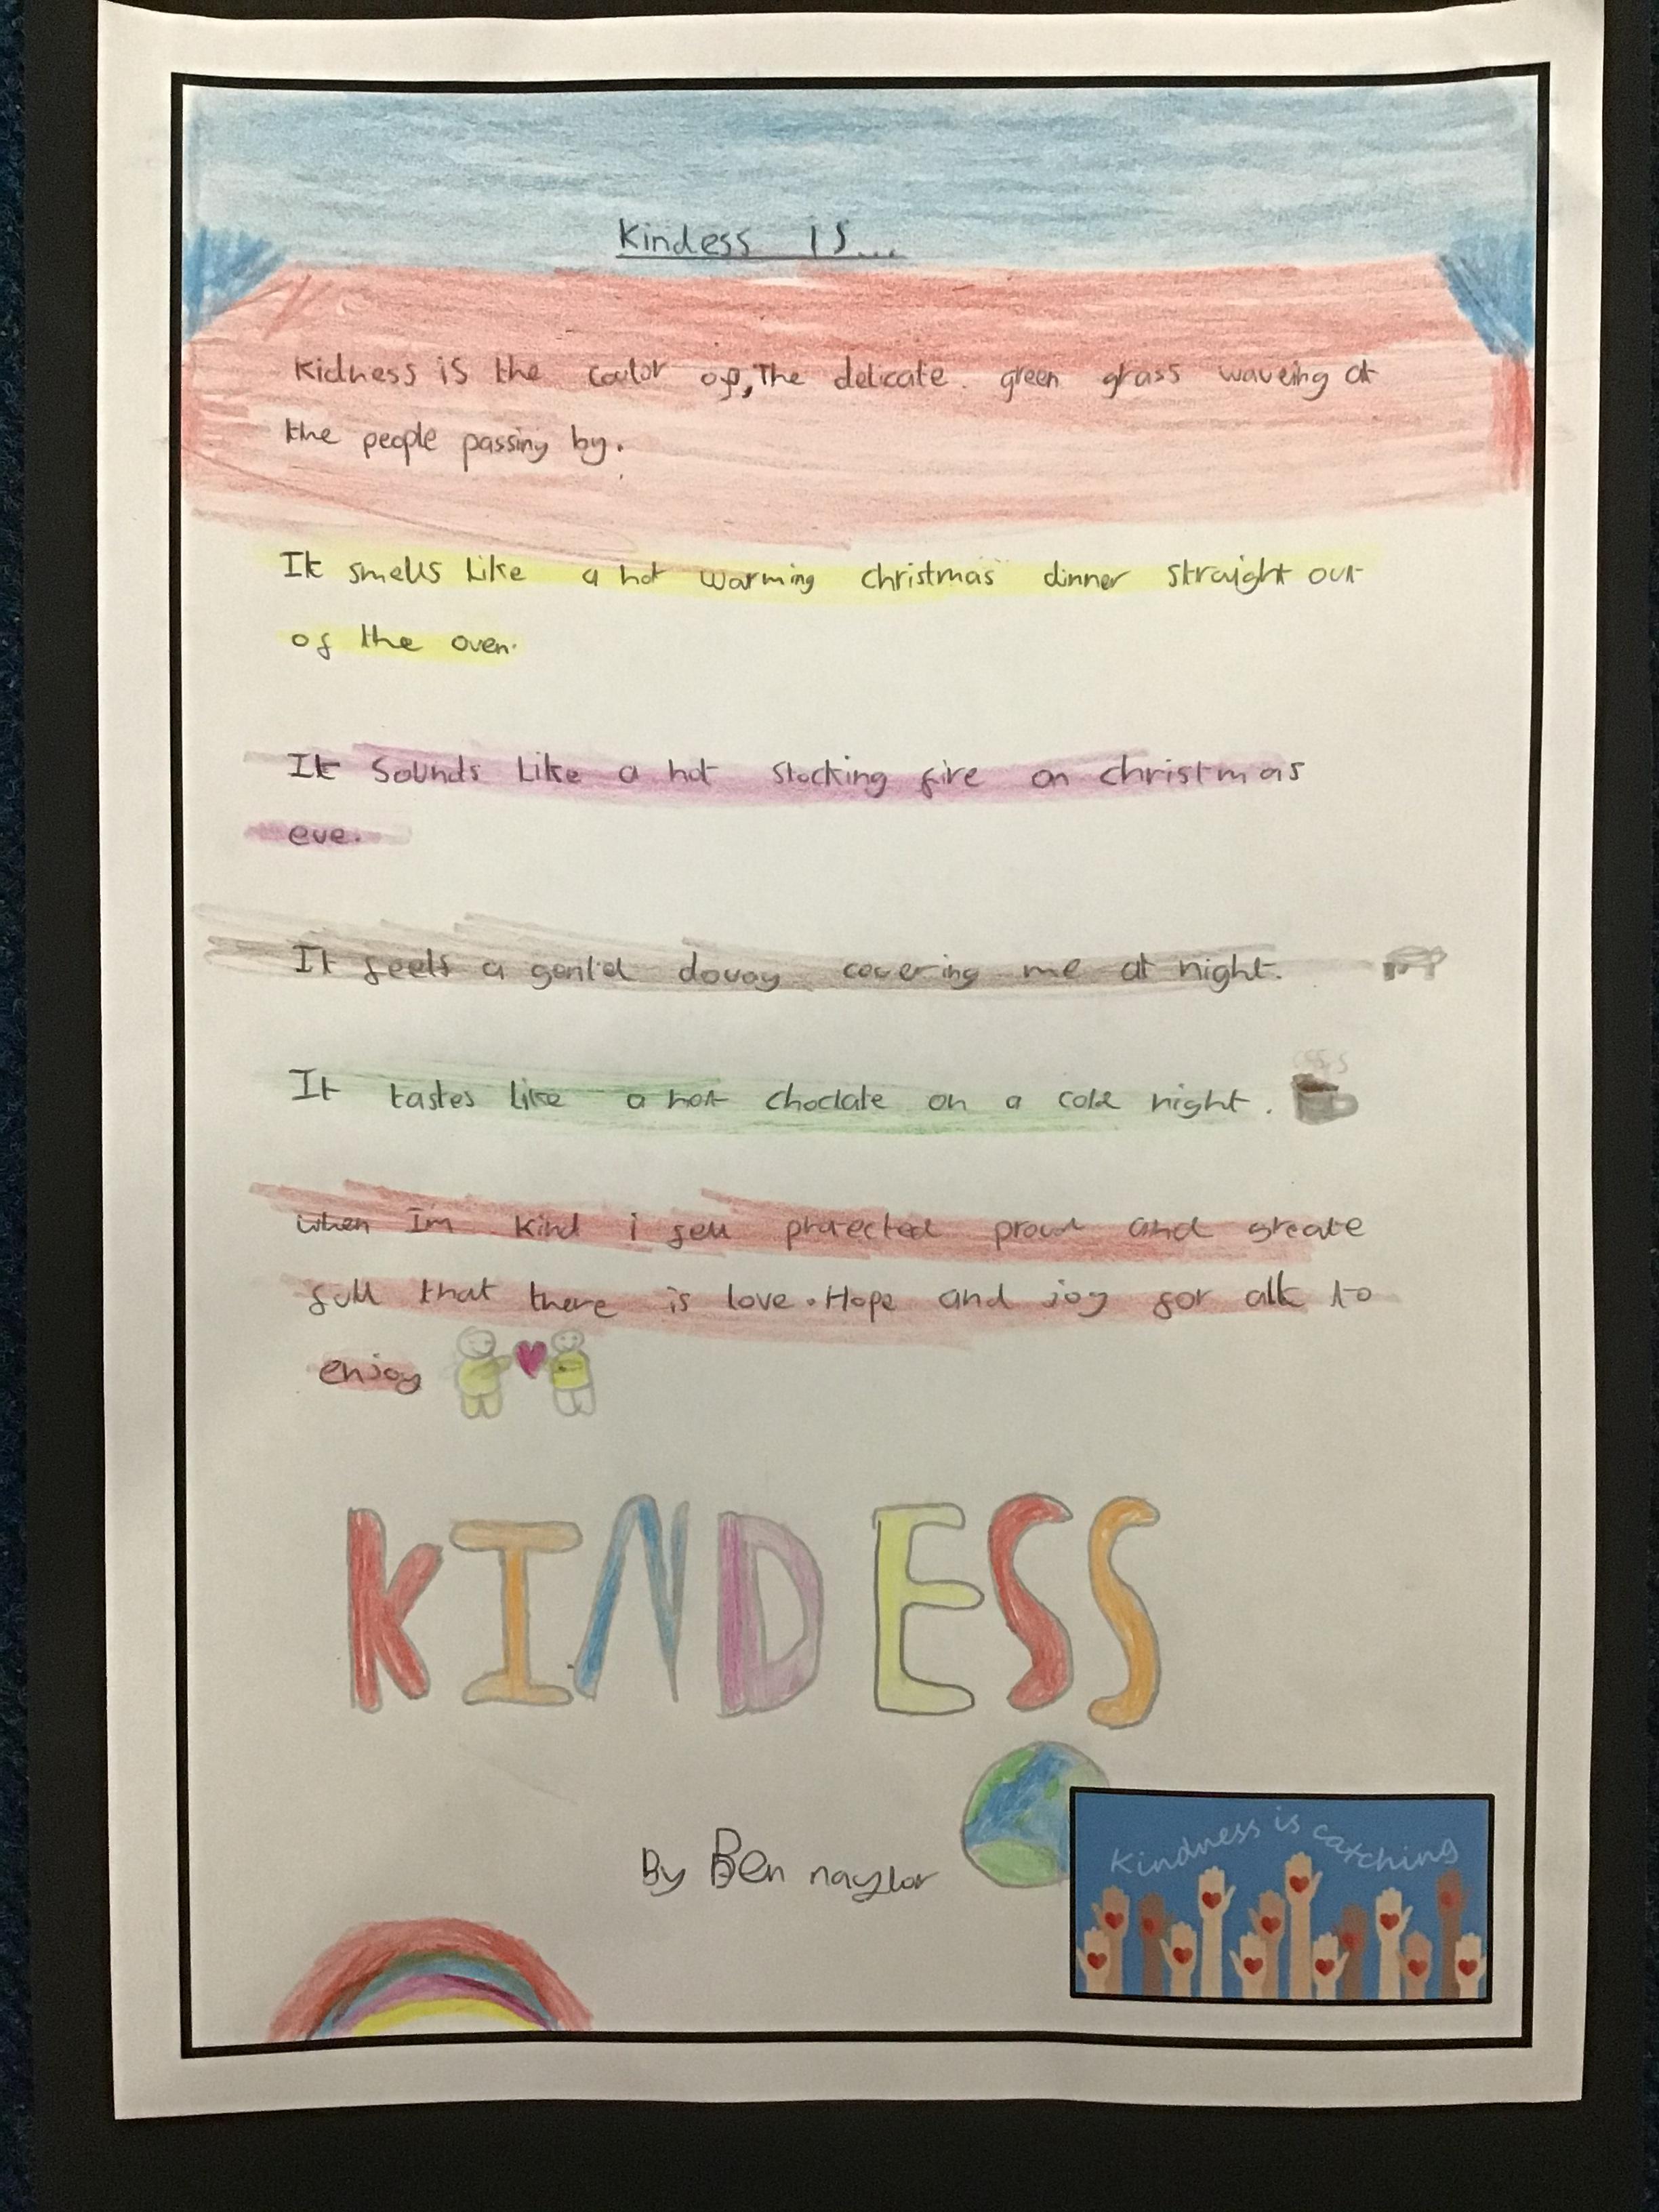 Kindess is...
Kidness is the coulor of, The delicate green grass waveing at
the people passing by.
It smells like a hot warming christmas dinner straight out
of the oven.
It sounds like a hot stocking fire on christmas
eve.
It feels a gentel dovay covering me at night.
It tastes like a hot choclate on a cold night.
when Im kind i fell protected proud and greate
full that there is love. Hope and joy for all to
enjoy
KINDESS
By Ben naylor
Kindness is catching